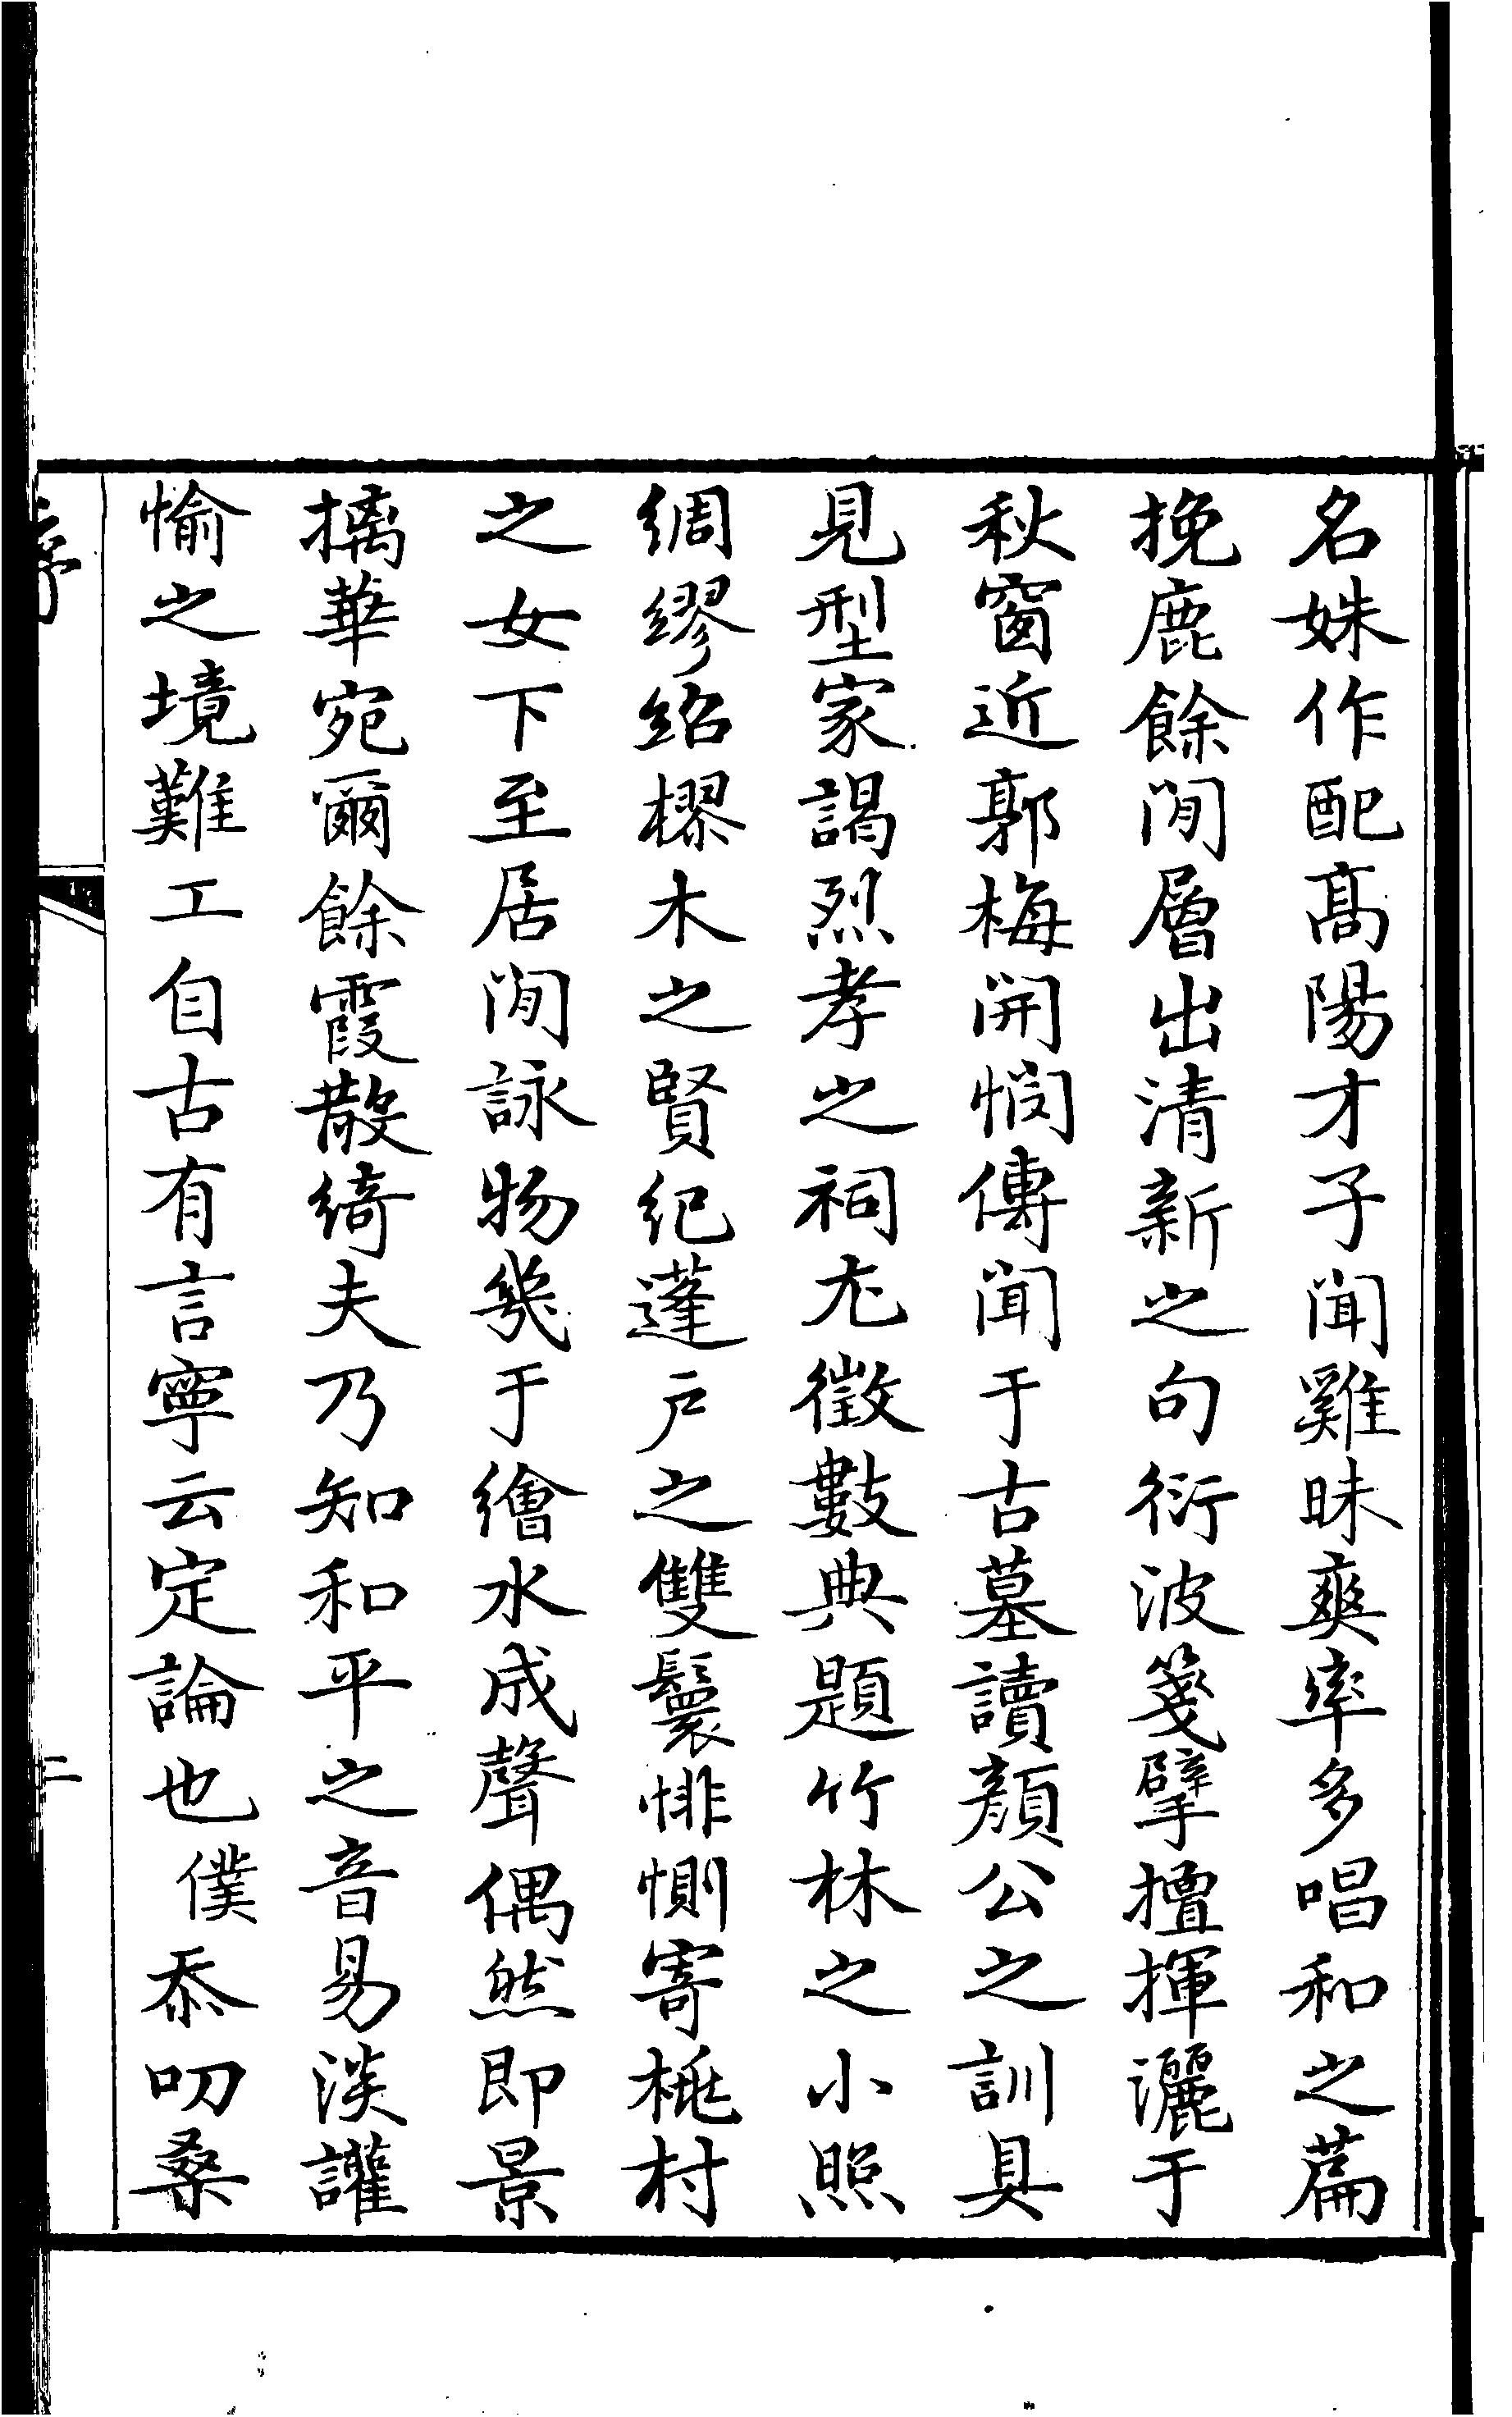 名姝作配髙陽才子聞雞昧爽率多唱和之篇
挽鹿餘閒層出清新之句衍波箋擘擅揮灑于
秋窗近郭梅開憫傳聞于古墓讀顏公之訓具
見型家謁烈孝之祠尤徵數典題竹林之小照
綢繆紹樛木之賢紀蓬戸之雙鬟悱惻寄桃村
之女下至居閒詠物幾于繪水成聲偶然即景
摛華宛爾餘霞散綺夫乃知和平之音易淡讙
愉之境難工自古有言寧云定論也僕忝叨桑
序
二